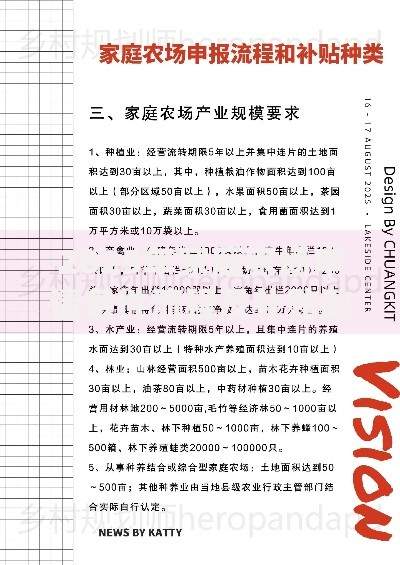 家庭农场申报流程和补贴种类
三、家庭农场产业规模要求
1、种植业：经营流转期限5年以上并集中连片的土地面
积达到30亩以上，其中，种植粮油作物面积达到100亩
以上（部分区域50亩以上），水果面积50亩以上，茶园
面积30亩以上，蔬菜面积30亩以上，食用菌面积达到1
万平方米或10万袋以上。
3、水产业：经营流转期限5年以上，且集中连片的养殖
水面达到30亩以上（特种水产养殖面积达到10亩以上）
4、林业：山林经营面积500亩以上，苗木花卉种植面积
30亩以上，油茶80亩以上，中药材种植30亩以上。经
营用材林地200～5000亩,毛竹等经济林50～1000亩以
上，花卉苗木、林下种植50～1000亩，林下养蜂100～
500箱、林下养殖蛙类20000～100000只。
5、从事种养结合或综合型家庭农场：土地面积达到50
～500亩；其他种养业由当地县级农业行政主管部门结
合实际自行认定。
NEWS BY KATTY
16 - 17 AUGUST 2025 - LAKESIDE CENTER
Design By CHUANGKIT
VISION
乡村规划师heropandapd